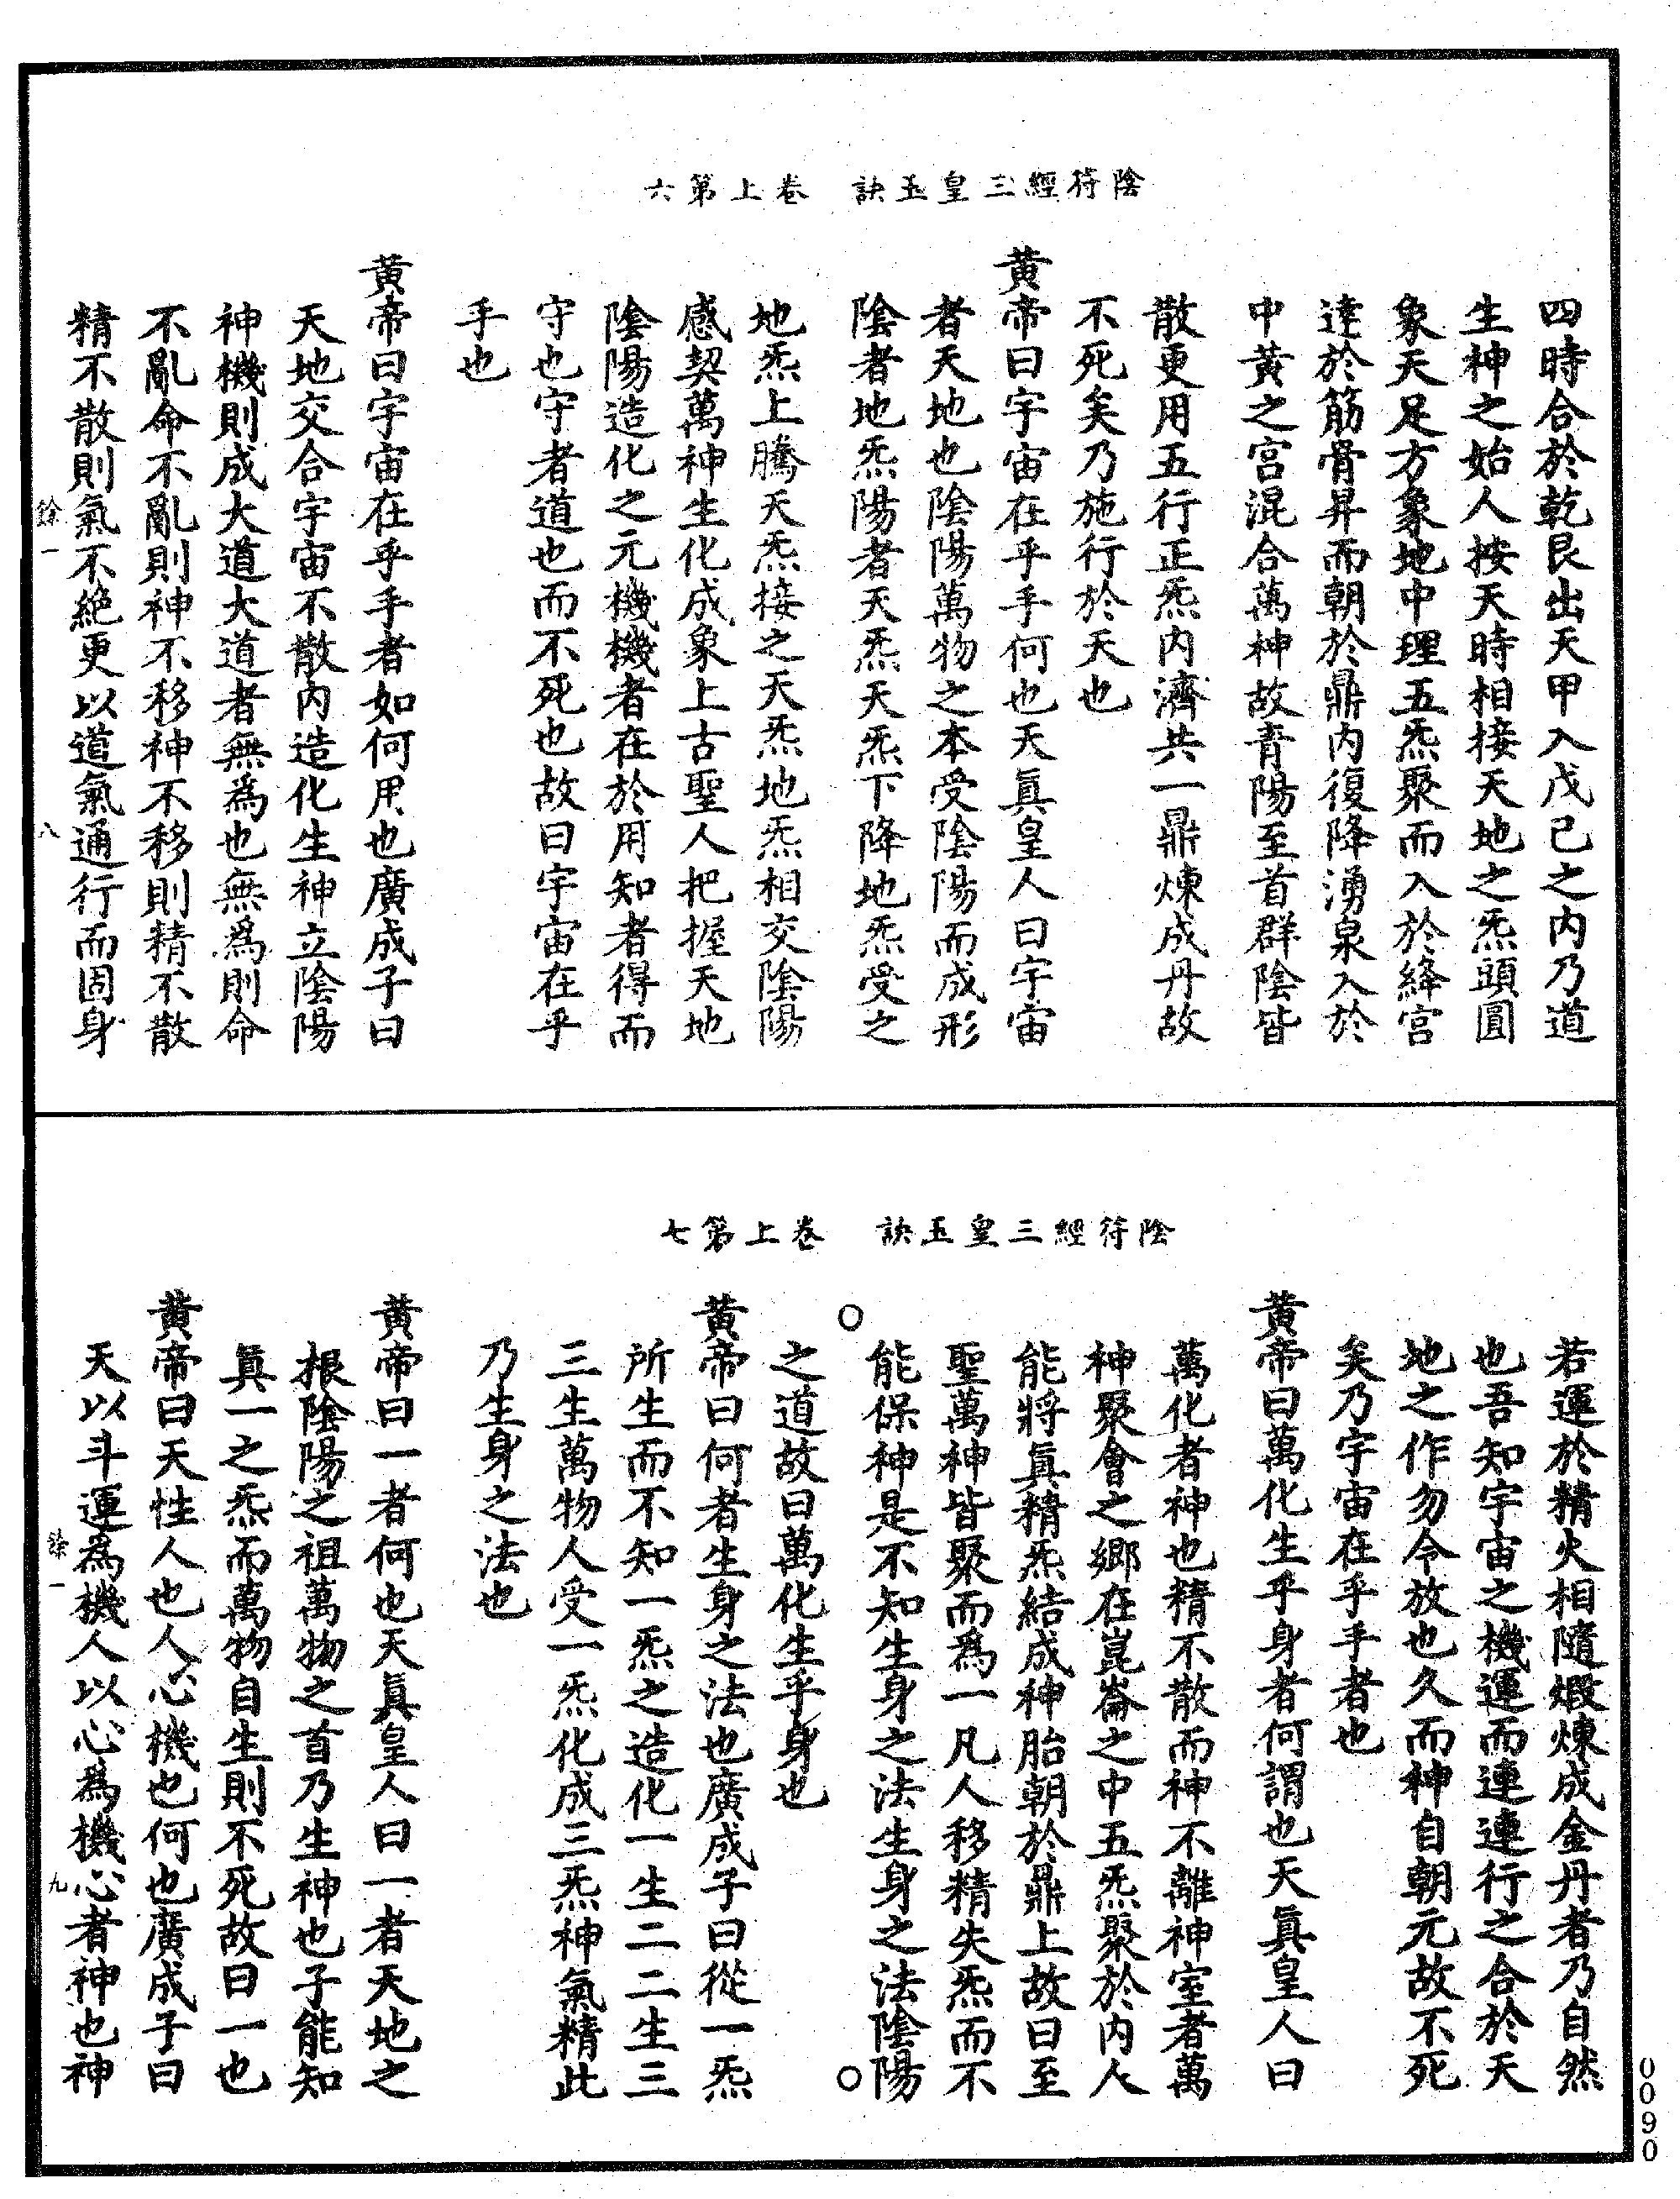 陰符經三皇玉訣　卷上第六
四時合於乾艮出天甲入戊己之內乃道
生神之始人按天時相接天地之炁頭圓
象天足方象地中理五炁聚而入於絳宮
達於筋骨昇而朝於鼎內復降湧泉入於
中黃之宮混合萬神故青陽至首群陰皆
散更用五行正炁內濟共一鼎煉成丹故
不死矣乃施行於天也
黃帝曰宇宙在乎手何也天眞皇人曰宇宙
者天地也陰陽萬物之本受陰陽而成形
陰者地炁陽者天炁天炁下降地炁受之
地炁上騰天炁接之天炁地炁相交陰陽
感契萬神生化成象上古聖人把握天地
陰陽造化之元機機者在於用知者得而
守也守者道也而不死也故曰宇宙在乎
手也
黃帝曰宇宙在乎手者如何用也廣成子曰
天地交合宇宙不散內造化生神立陰陽
神機則成大道大道者無爲也無爲則命
不亂命不亂則神不移神不移則精不散
精不散則氣不絕更以道氣通行而固身
餘一
八
陰符經三皇玉訣　卷上第七
若運於精火相隨煅煉成金丹者乃自然
也吾知宇宙之機運而連連行之合於天
地之作勿令放也久而神自朝元故不死
矣乃宇宙在乎手者也
黃帝曰萬化生乎身者何謂也天眞皇人曰
萬化者神也精不散而神不離神室者萬
神聚會之鄉在崑崙之中五炁聚於內人
能將眞精炁結成神胎朝於鼎上故曰至
聖萬神皆聚而爲一凡人移精失炁而不
能保神是不知生身之法生身之法陰陽
之道故曰萬化生乎身也
黃帝曰何者生身之法也廣成子曰從一炁
所生而不知一炁之造化一生二二生三
三生萬物人受一炁化成三炁神氣精此
乃生身之法也
黃帝曰一者何也天眞皇人曰一者天地之
根陰陽之祖萬物之首乃生神也子能知
眞一之炁而萬物自生則不死故曰一也
黃帝曰天性人也人心機也何也廣成子曰
天以斗運爲機人以心爲機心者神也神
餘一
九
0090